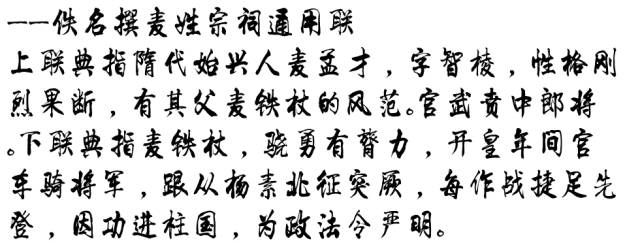 ——佚名撰麦姓宗祠通用联
上联典指隋代始兴人麦孟才，字智棱，性格刚
烈果断，有其父麦铁杖的风范。官武贲中郎将
。下联典指麦铁杖，骁勇有膂力，开皇年间官
车骑将军，跟从杨素北征突厥，每作战捷足先
登，因功进柱国，为政法令严明。